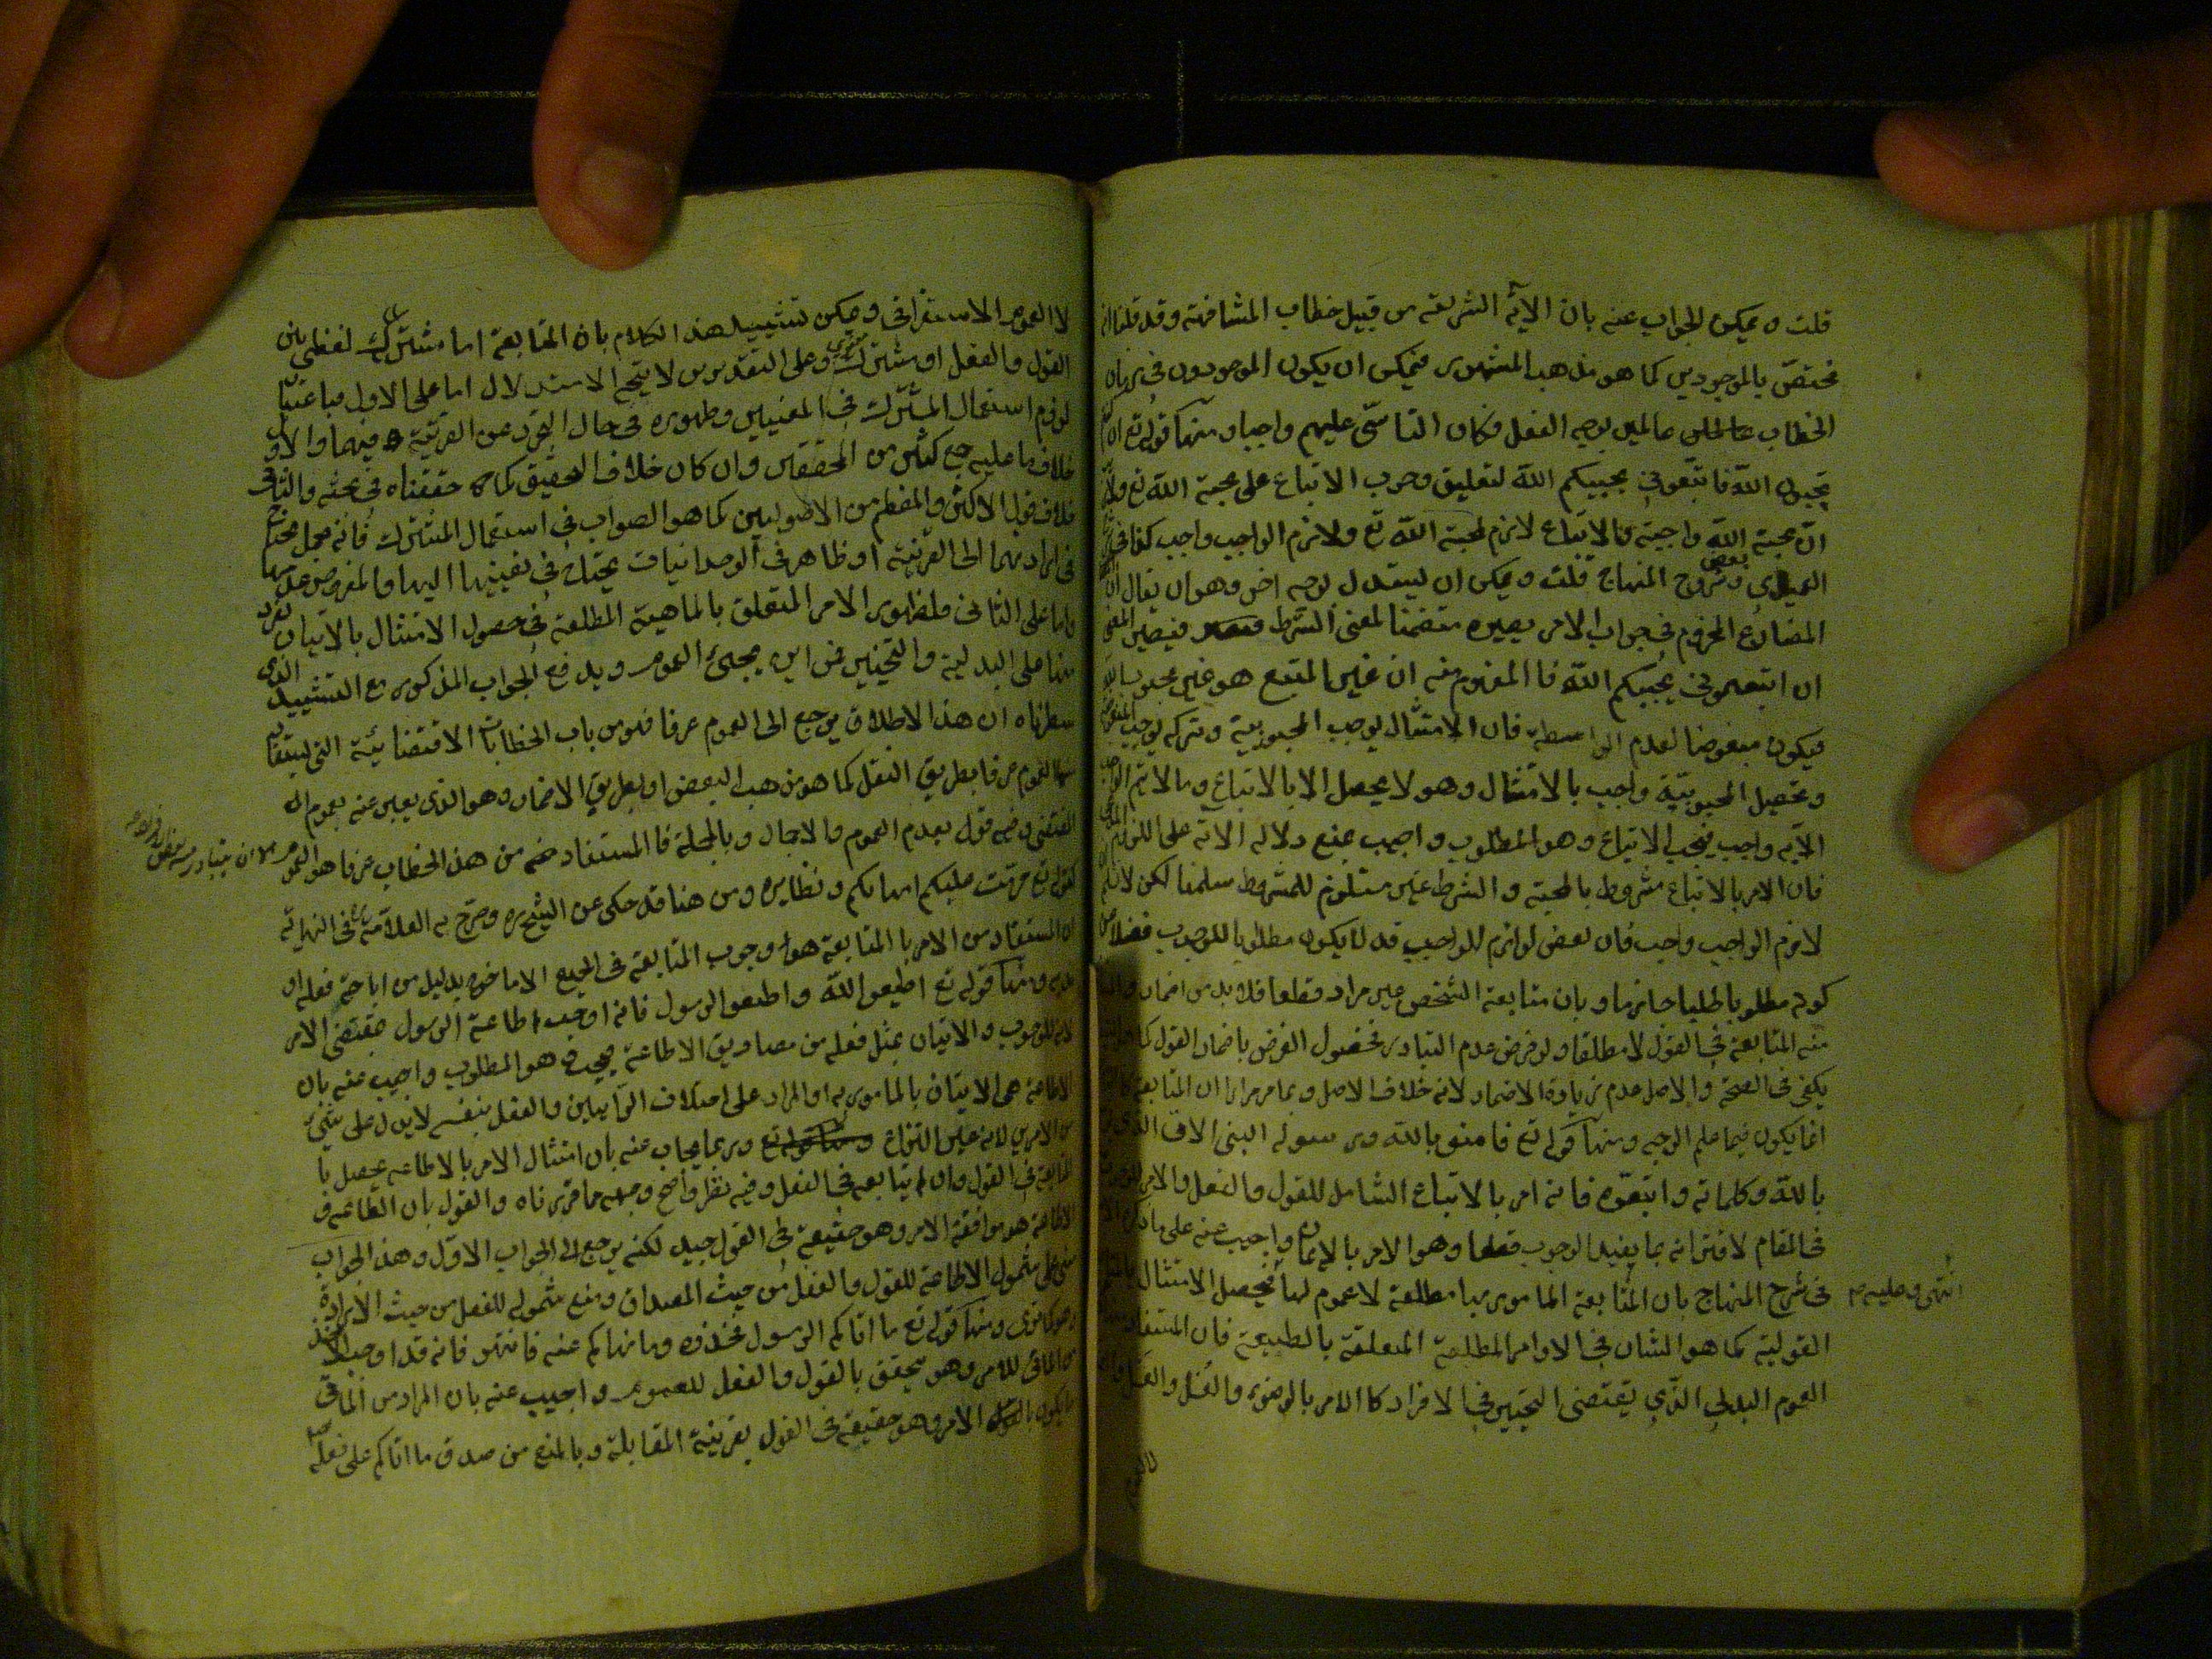 قلت ويمكن الجواب عنه بان الآية الشريفة من قبيل خطاب المشافهة وقد قلنا انه
مختص بالموجودين كما هو مذهب المشهور فيمكن ان يكون الموجودون في زمان
الخطاب عالمين بوجه الفعل فكان التاسّي عليهم واجبا ومنها قوله تع ان كنتم
تحبون الله فاتبعوني يحببكم الله لتعليق وجوب الاتباع على محبة الله تع
انّ محبة الله واجبة والاتباع لازم لمحبة الله تع ولازم الواجب واجب كذا في
العميدي وبعض شروح المنهاج قلت ويمكن ان يستدل بوجه اخر وهو ان يقال ان
المضارع المجزوم في جواب الامر يصير متضمنا لمعنى الشرط فيصير المعنى
ان اتبعتموني يحببكم الله فالمفهوم منه ان غير المتبع هو غير محبوب الله
فيكون مبغوضا لعدم الواسطة فان الامتثال يوجب المحبوبية وتركه يوجب
وتحصيل المحبوبية واجب بالامتثال وهو لا يحصل الا بالاتباع وما لا يتم الواجب
الا به واجب فيجب الاتباع وهو المطلوب واجيب بمنع دلالة الاية على اللزوم
فان الامر بالاتباع مشروط بالمحبة والشرط غير مستلزم للمشروط سلمنا لكن لا نسلم
لازم الواجب واجب فان بعض لوازم الواجب قد لا يكون مطلوبا للوجوب فضلا من
كونه مطلوبا طلبا جازما وبان متابعة الشخص غير مراد قطعا فلا بد من اضمار
منه المتابعة في القول لا مطلقا ولو فرض عدم التبادر فحصول الغرض باضمار القول
يكفي في الصحة والاصل عدم زيادة الاضمار لانه خلاف الاصل وبما مر مرارا ان المتابعة
انما يكون فيما علم الوجه ومنها قوله تع فامنوا بالله ورسوله النبي الامّي الذي يؤمن
بالله وكلماته واتبعوه فانه امر بالاتباع الشامل للقول والفعل والامر للوجوب
في المقام لاقترانه بما يفيد الوجوب قطعا وهو الامر بالايمان واجيب عنه على ما
في شرح المنهاج بان المتابعة المامور بها مطلقة لا عموم لها فيحصل الامتثال
القولية كما هو الشان في الاوامر المطلقة المتعلقة بالطبيعة فان المستفاد
العموم البدلي الذي يقتضي التخيير في الافراد كالامر بالوضوء والغسل
انتهى وعليه
لا العموم الاستغراقي ويمكن تشييد هذا الكلام بان المتابعة اما مشترك لفظي بين
القول والفعل او مشترك معنوي وعلى التقديرين لا يتجه الاستدلال اما على الاول فباعتبار
لزوم استعمال المشترك في المعنيين وظهوره في حال التجرد عن القرينة فيهما والاول
خلاف ما عليه جمع كثير من المحققين وان كان خلاف التحقيق كما حققناه في بحثه والثاني
خلاف قول الاكثر والمعظم من الاصوليين كما هو الصواب في استعمال المشترك فانه مجمل محتاج
في ارادتهما الى القرينة او ظاهر في الوحدانيات يحتاج في تعيينها اليها والمفروض عدمها
واما على الثاني فلظهور الامر المتعلق بالماهية المطلقة في حصول الامتثال بالاتيان بفرد
منها على البدلية والتخيير فمن اين يجيئ العموم ويدفع الجواب المذكور مع التشييد الذي
سطرناه ان هذا الاطلاق يرجع الى العموم عرفا فهو من باب الخطابات الاقتضائية التي يستفاد
منها العموم عرفا بطريق النقل كما هو مذهب البعض او بطريق الاضمار وهو الذي يعبر عنه بعموم
المقتضى وفيه قول بعدم العموم والاجمال وبالجملة فالمستفاد من هذا الخطاب عرفا هو العموم
كقوله تع حرمت عليكم امهاتكم ونظايره ومن هنا قد حكى عن الشيخ ره وصرح به العلامة ره في النهاية
ان المستفاد من الامر بالمتابعة هو وجوب المتابعة في الجميع الا ما خرج بدليل من اباحة فعله او
ومنها قوله تع اطيعوا الله واطيعوا الرسول فانه اوجب اطاعة الرسول بمقتضى الامر
لانه للوجوب والاتيان بمثل فعله من مصاديق الاطاعة فيجب هو المطلوب واجيب عنه بان
الاطاعة هي الاتيان بالمامور به او المراد على اختلاف الرايين والفعل بنفسه لا يدل على شيئ
من الامرين لانه عين النزاع وربما يجاب عنه بان امتثال الامر بالاطاعة يحصل با
لمتابعة في القول وان لم يتابعه في الفعل وفيه نظر واضح وجهه ما قررناه والقول بان الطاعة
الاطاعة هو موافقة الامر وهو حقيقة في القول جيد لكنه يرجع الى الجواب الاول وهذا الجواب
مبنى على شمول الاطاعة للقول والفعل من حيث المصداق ومنع شموله للفعل من حيث الارادة
وهو كما ترى ومنها قوله تع ما اتاكم الرسول فخذوه وما نهاكم عنه فانتهوا فانه قد اوجب الاخذ
للامر وهو يتحقق بالقول والفعل للعموم واجيب عنه بان المراد من
الامر وهو حقيقة في القول بقرينة المقابلة وبالمنع من صدق ما اتاكم على فعله